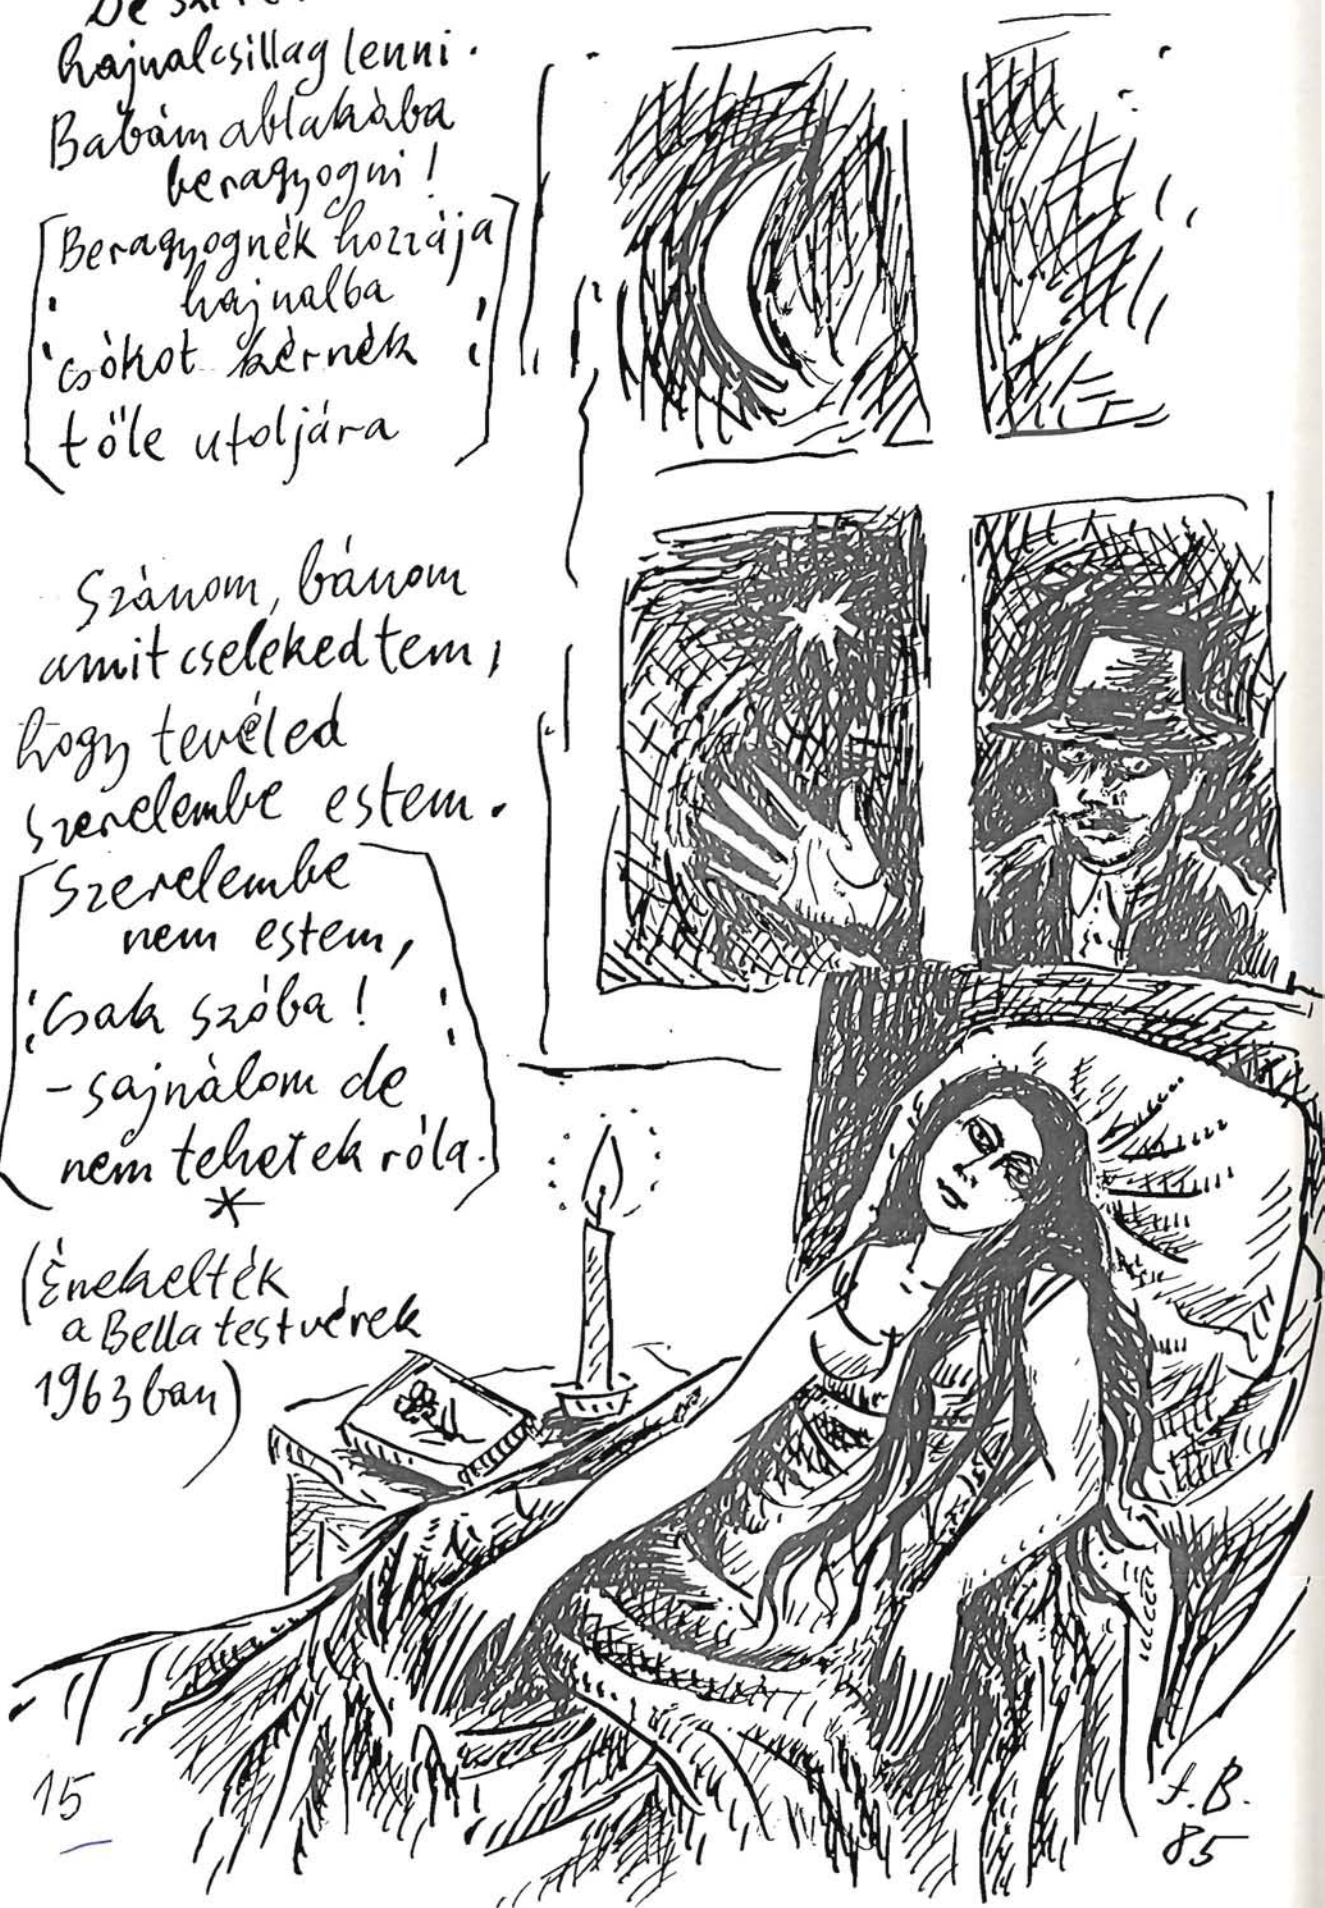 De
hajnalcsillag lenni.
Babám ablakába
beragyogni!
Beragyognék hozzája
hajnalba
csókot kérnék
tőle utoljára
Szánom, bánom
amit cselekedtem,
hogy tevéled
szerelembe estem.
Szerelembe
nem estem,
Csak szóba!
- sajnálom de
nem tehetek róla.
*
(Énekelték
a Bella testvérek
1963ban)
15
f. B.
85